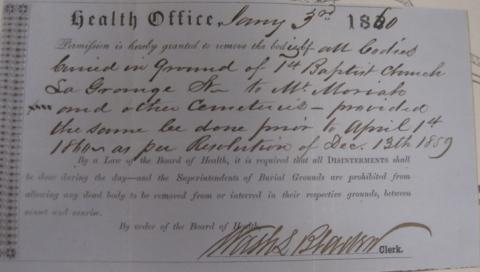 Health Office, Jany 3rd 1860
Permission is hereby granted to remove the bodies of all bodies
buried in Ground of 1st Baptist Church
La Grange St to Mt. Moriah
and other Cemeteries - provided
the same be done prior to April 1st
1860 as per Resolution of Dec. 13th 1859
By a Law of the Board of Health, it is required that all DISINTERMENTS shall
be done during the day—and the Superintendents of Burial Grounds are prohibited from
allowing any dead body to be removed from or interred in their respective grounds, between
sunset and sunrise.
By order of the Board of Health,
Clerk.